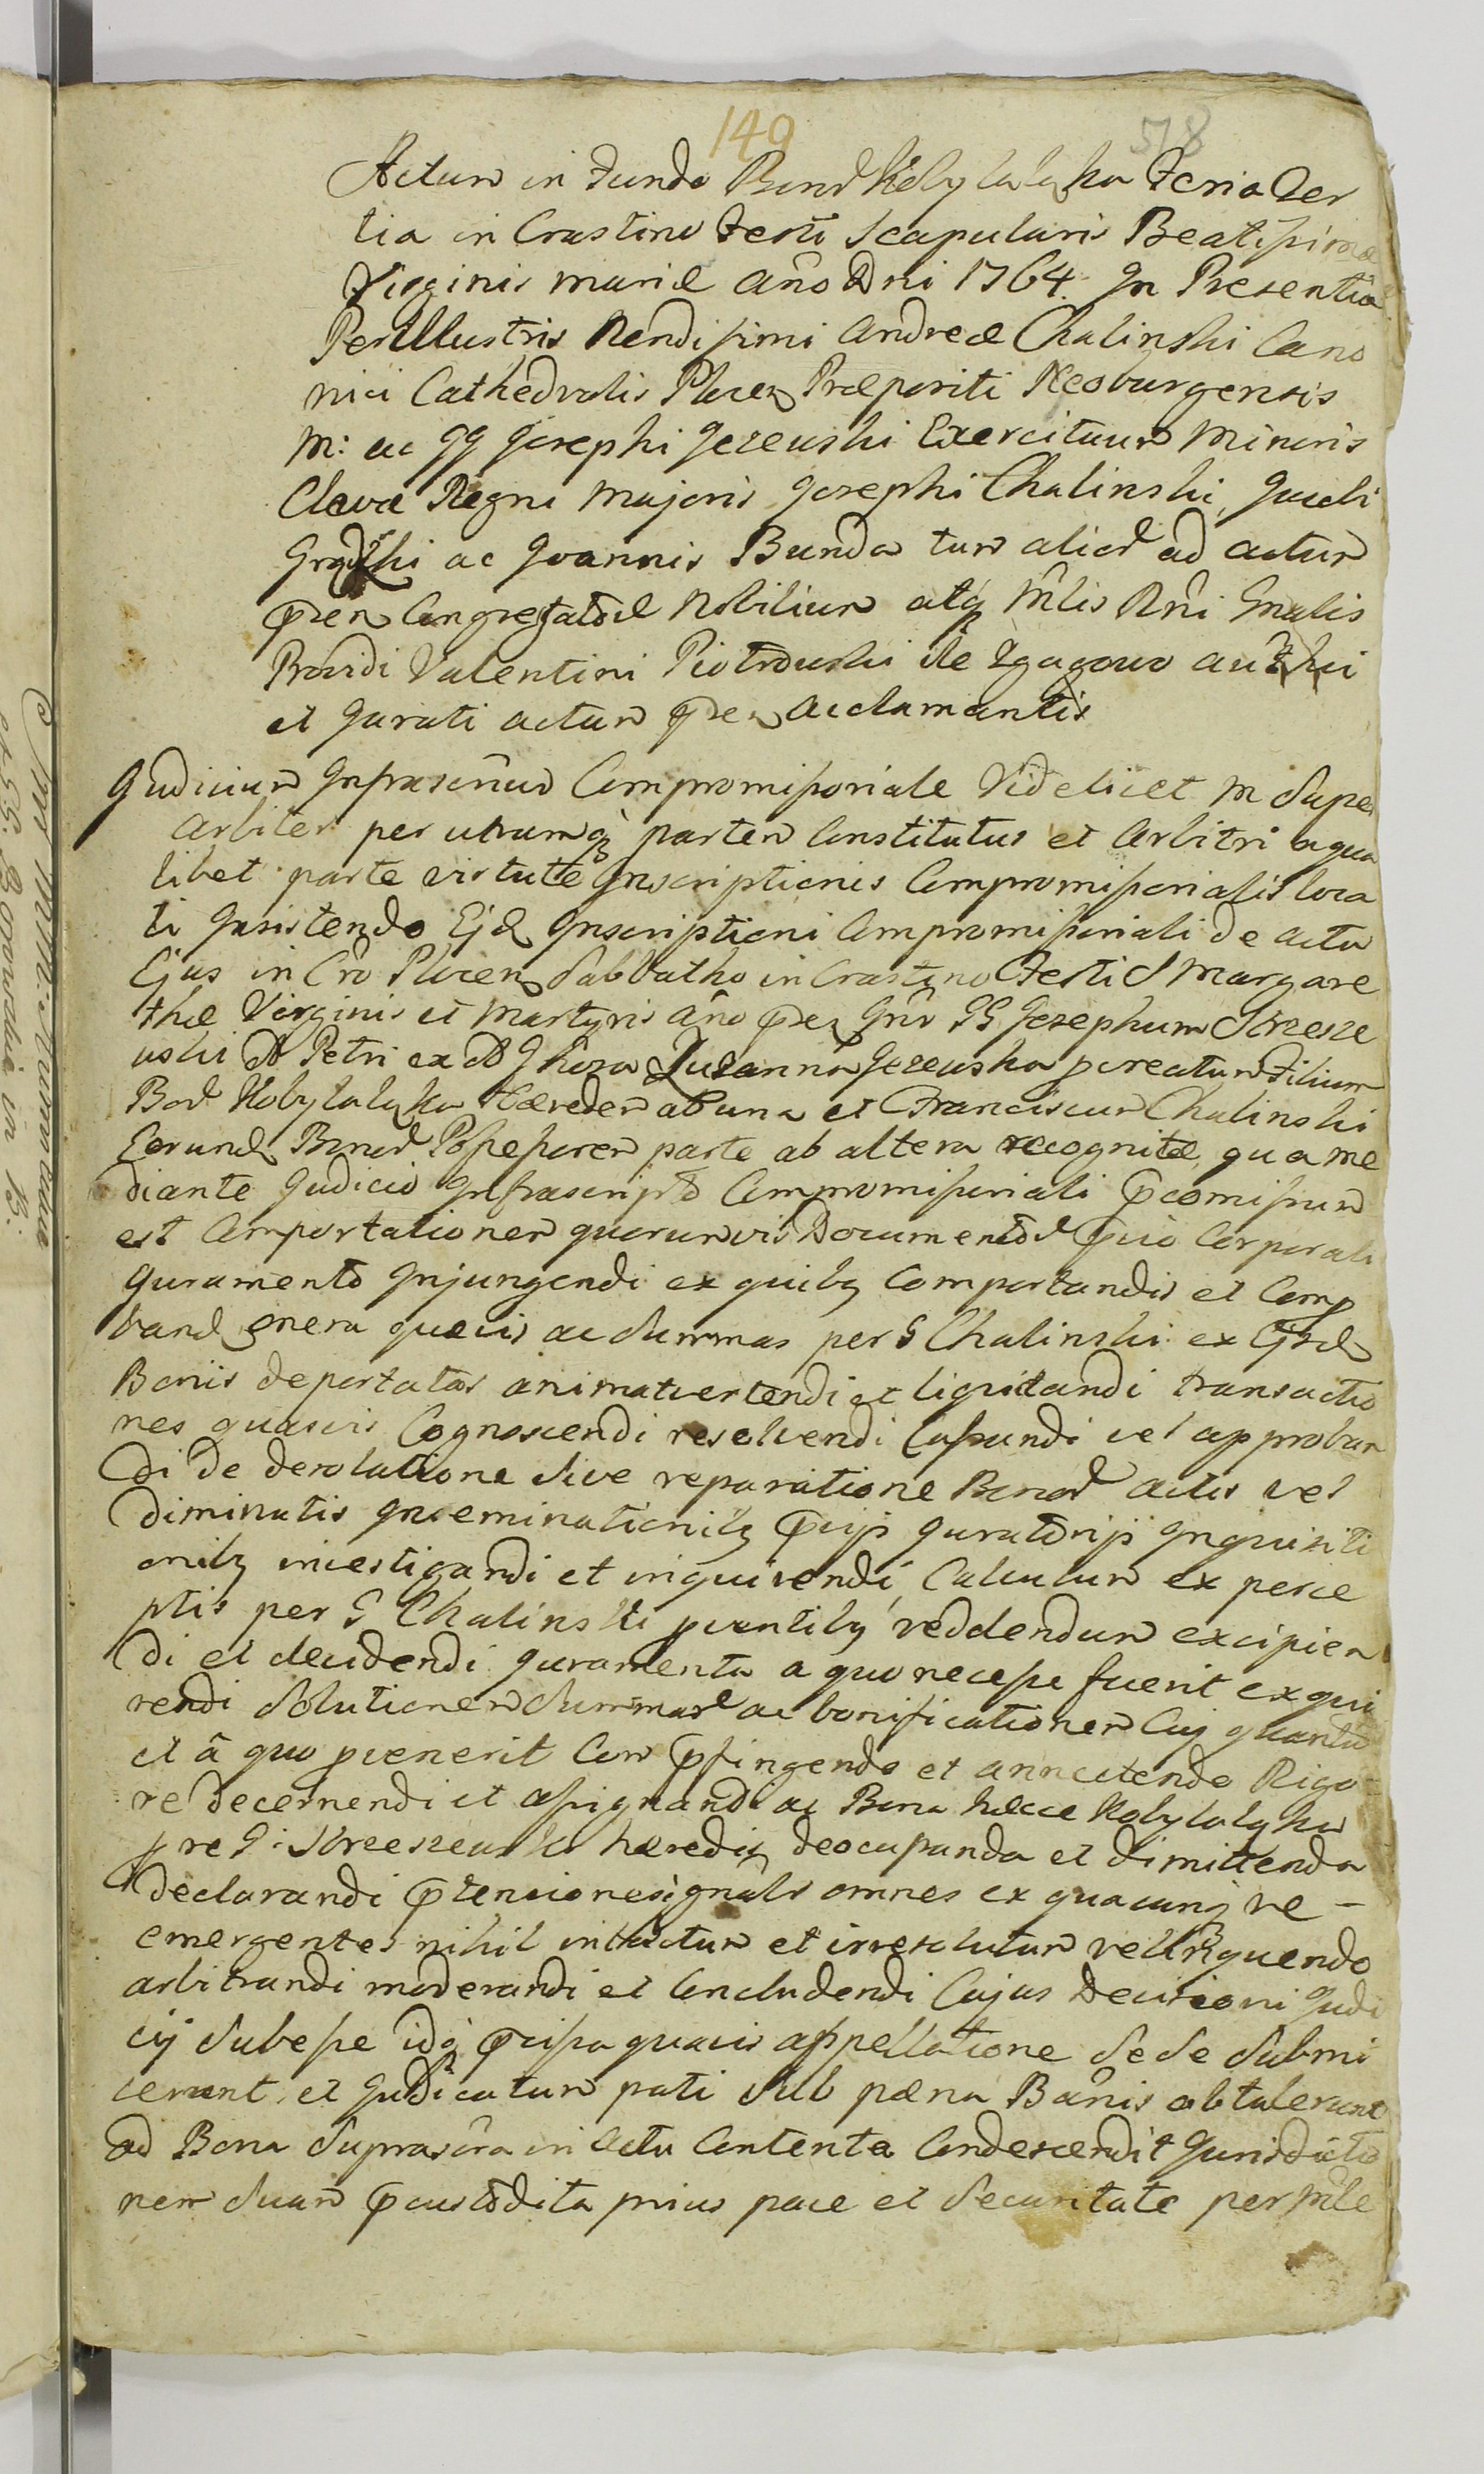 149 578
Actum in Fundo Bonor Kobylałąka Feria Ter
tia in Crastino Festi Scapularis Beatissimæ
Virginis mariæ año Dni 1764. In Presentia
Perillustris Rendissimi Andreæ Chalinski Cano
nici Cathedralis Plocen Præpositi Neoburgensis
M: ac GG Josephi Jezewski Exercituum Minoris
Clavæ Regni Majoris Josephi Chalinski,
ac Joannis Bunda tum alior ad actum
pñ Congregator Nobilium atq Mlis Rñi Gnalis
Providi Valentini Piotrowski de Zgagowo
et Jurati actum pñ acclamantis
Judicium Infrascriũ Compromissoriale Videlicet M Super
arbiter per utramq partem Constitutus et Arbitri a qua
libet parte virtute Inscriptionis Compromissorialis loca
ti Insistendo Ejd Inscriptioni Compromissoriali de actu
Ejus in Cro Plocen Sabbatho in Crastino Festi S Margare
thæ Virginis et Martyris año pñ Inr GG Josephum Strzesze
wski N Petri ex N Ghoza Zuzanna Jezewska pcreatum Filium
Bor Kobylałąka Hæredem ab una et Franciscum Chalinski
Eorund Bonor Possessorem parte ab altera recognitæ, qua me
diante Judicio Infrascripto Compromissoriali pcomissum
est Comportationem quorumvis Documentor pvio Corporali
Juramento Injungendi ex quibq Comportandis et Comp
band onera quævis ac Summas per G Chalinski ex Ejsd
Bonis deportatas animatvertendi et liquidandi transactio
nes quasvis Cognoscendi resolvendi Cassandi vel approban
di de desolatione sive reparatione Bonor actis vel
diminutis Incriminationibq pvijs Juratorijs Inquisiti
onibq investigandi et inquirendi, Calculum ex perce
ptis per G Chalinski pventibq reddendum excipien
di et decidendi Juramenta a quo necesse fuerit exqui
rendi Solutionem Summar ac bonificationem Cuj quantũ
et â quo pvenerit Cum pfingendo et annectendo Rigo
re decernendi et assignandi ac Bona hæcce Kobylałąka
pre G: Strzeszewski hærede deocupanda et dimittenda
Declarandi ptensiones gnalr omnes ex quacunq re -
emergentes nihil intactum et irresolutum relinquendo
arbitrandi moderandi et Concludendi Cujus Decisioni Judi
cij Subesse idq pcisa quavis appellatione Sese Submi
serunt, et Judicatum pati Sub pæna Bañis obtulerunt
ad Bona Suprascra in actu Contenta Condescendit Jurisdictio
nem Suam pcustodita prius pace et Securitate per Mle